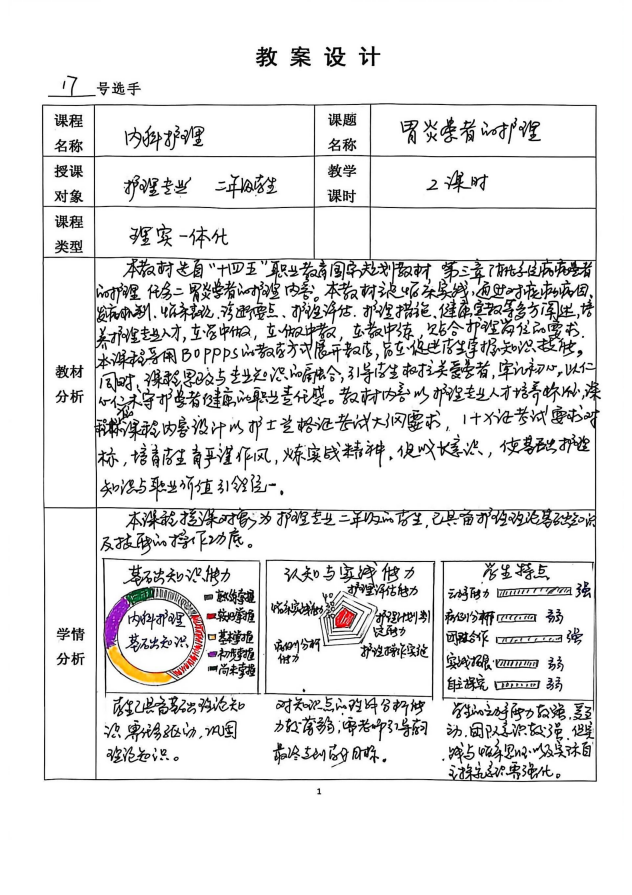 教案设计
17 号选手
课程名称 内科护理 课题名称 胃炎患者的护理
授课对象 护理专业 二年级学生 教学课时 2课时
课程类型 理实一体化
教材分析
本教材选自“十四五”职业教育国家规划教材 第三章消化系统疾病患者
的护理 任务二胃炎患者的护理内容。本教材引进临床实践,通过对疾病病因、
发病机制、临床表现、诊断要点、护理评估、护理措施、健康宣教等多方阐述,培
养护理专业人才,立学中做,立做中教,立教中练,贴合护理岗位的要求。
本课程采用BOPPPS的教学方式展开教学,旨在促进学生掌握知识技能。
同时,课程思政与专业知识的融合,引导学生敬护关爱患者,牢记初心,以仁
心仁术守护患者健康的职业责任感。教材内容以护理专业人才培养标准,深
课程内容设计以护士资格证考试大纲要求,1+X证考试要求对
标,培育学生严谨作风,炼实战精神,促成长意识,使基础护理
知识与职业价值引领统一。
学情分析
本课程授课对象为护理专业二年级的学生,已具备护理理论基础知识
及技能的操作功底。
基础知识能力
内科护理
基础知识
熟练掌握
较好掌握
基本掌握
初步掌握
尚未掌握
学生已具备基础理论知
识,需任务驱动,巩固
理论知识。
认知与实践能力
护理评估能力
临床实践能力
护理计划制定能力
病例分析能力
护理操作实施
对知识点的理解分析能
力较薄弱;需老师引导
最终达到教学目标。
学生特点
动手能力 强
病例分析 弱
团队合作 强
实践拓展 弱
自主探究 弱
学生的动手能力较强,爱互
动,团队意识较强,但实
践与临床思维以及实体自
主探究意识需强化。
1